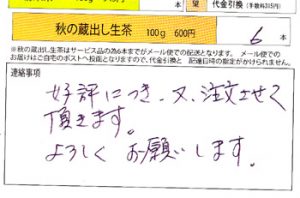 100g 600円 本 望 代金引換（手数料315円）
秋の蔵出し生茶 100g 600円 6本
※秋の蔵出し生茶はサービス品の為6本までがメール便での配送となります。メール便での
お届けはご自宅のポストへ投函となりますので、代金引換と配達日時の指定がかけられません。
連絡事項
好評につき、又、注文させて
頂きます。
よろしくお願いします。